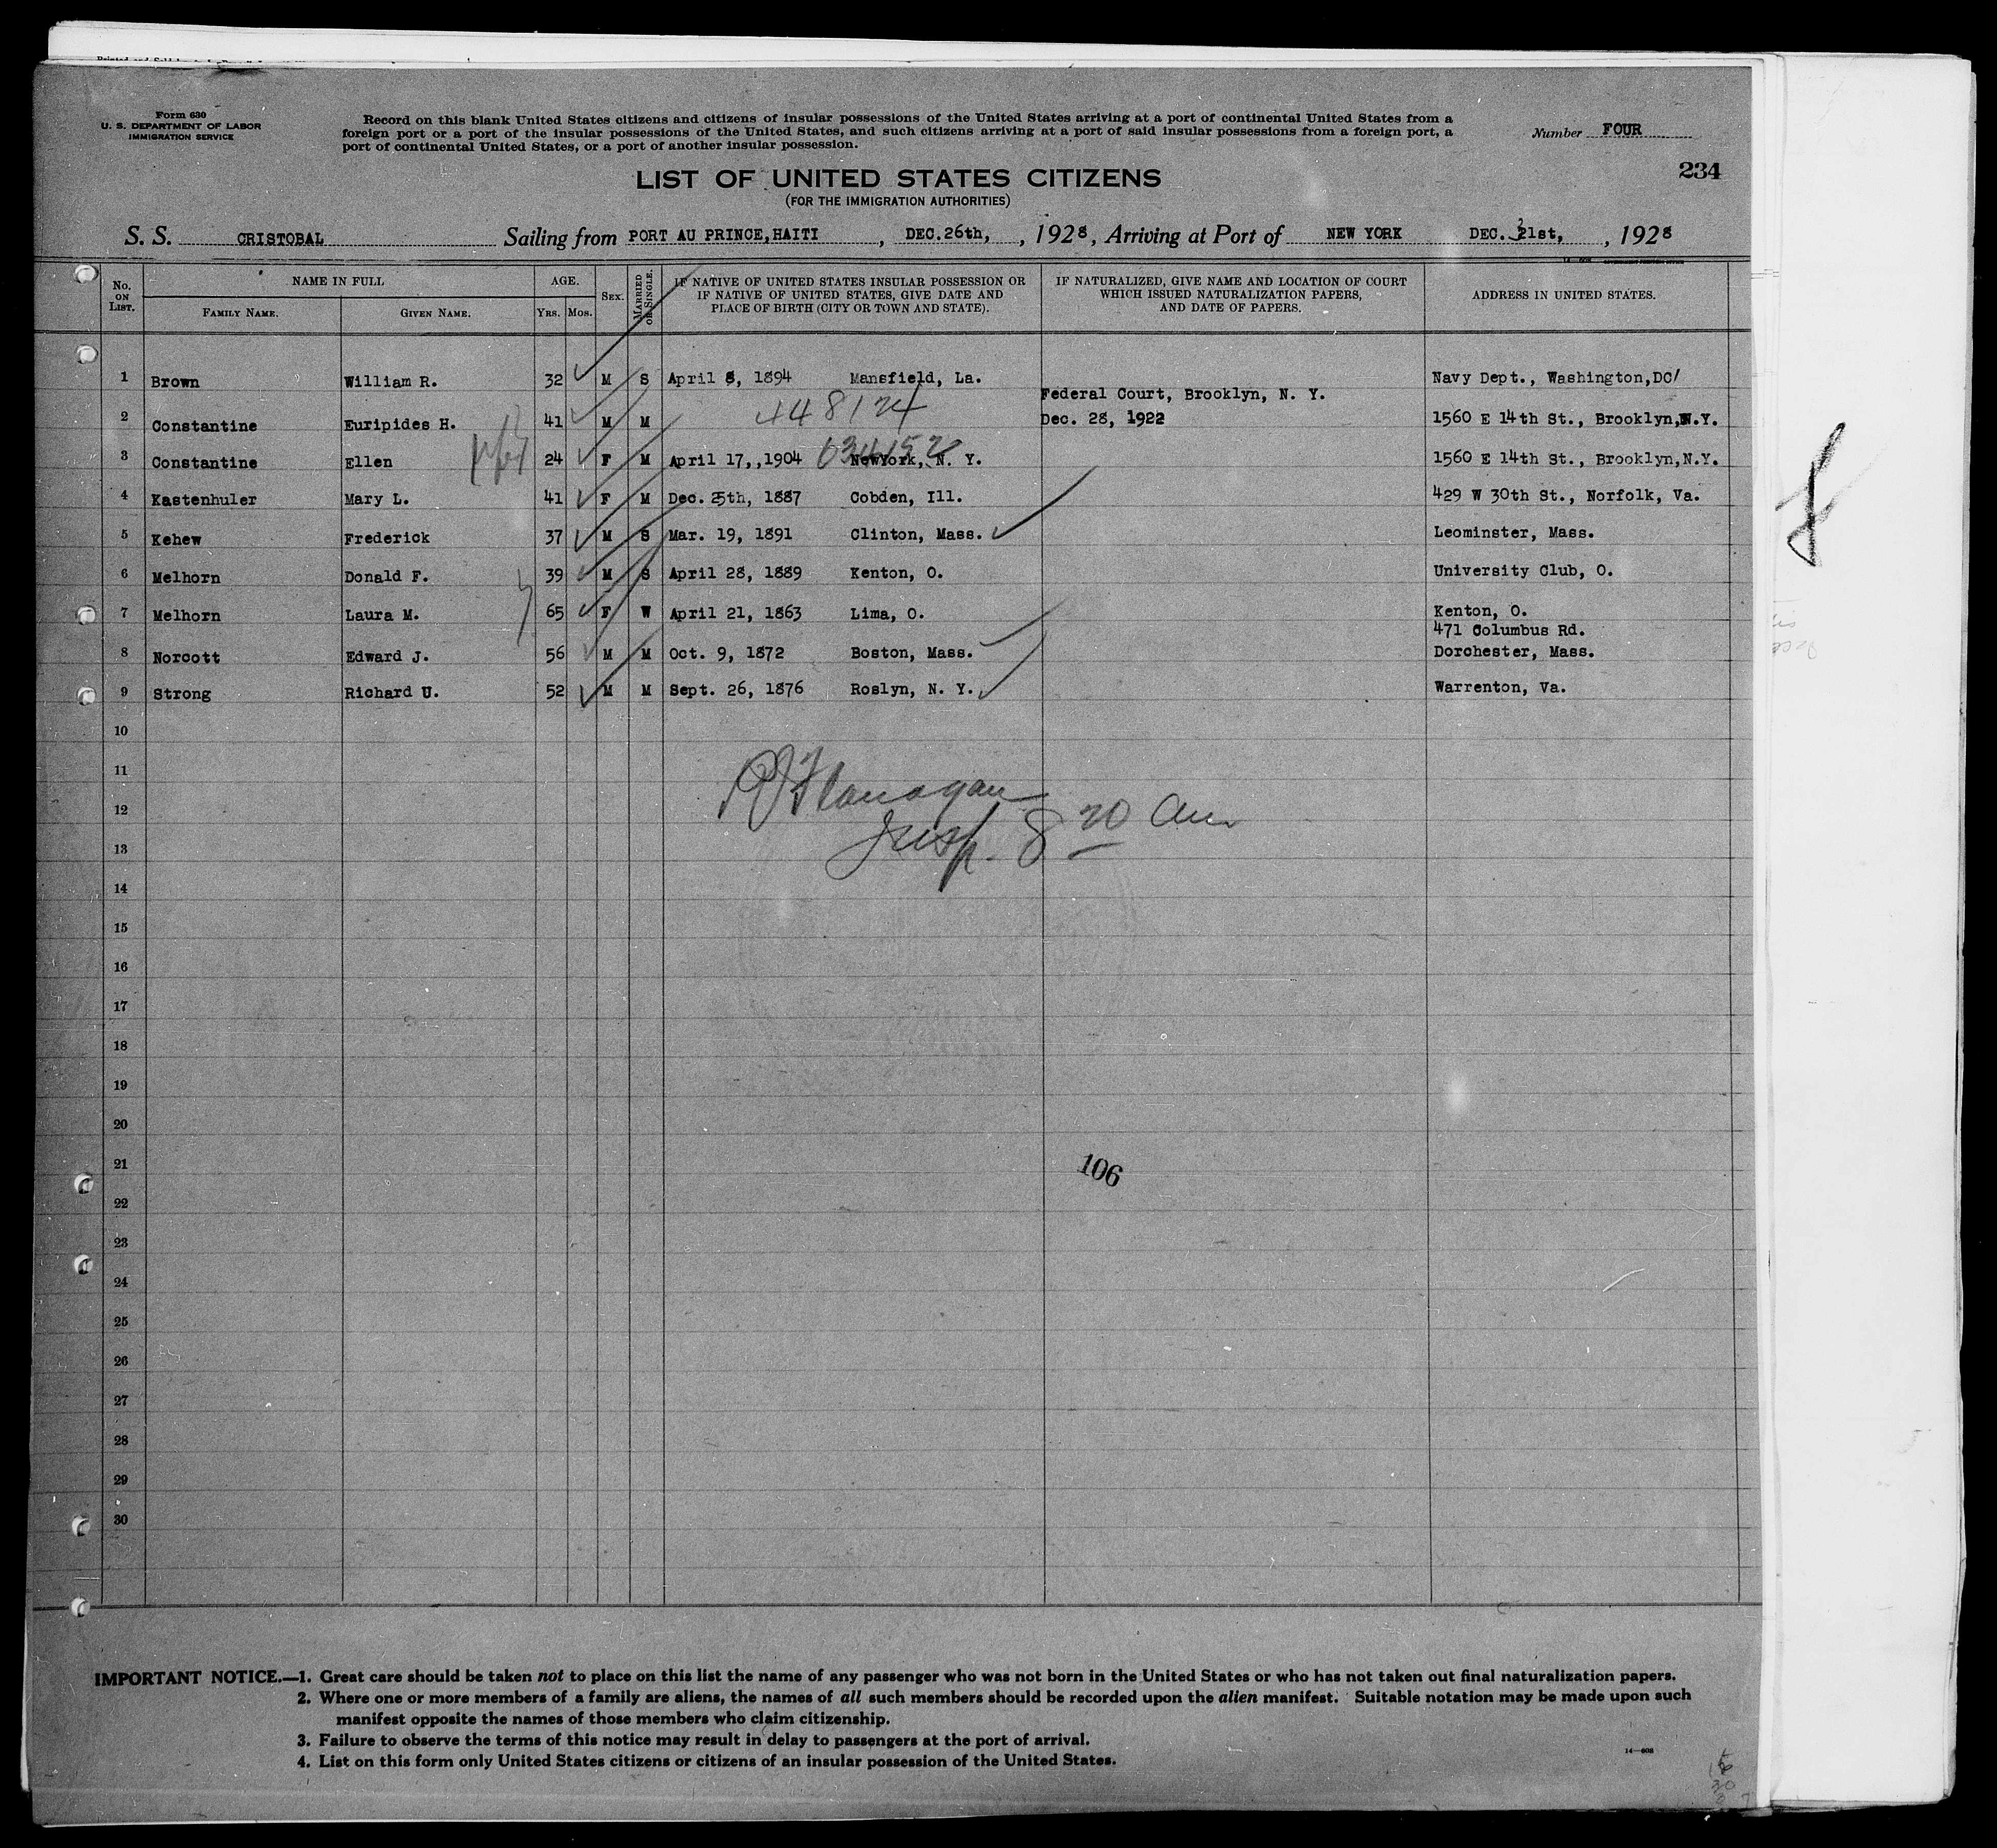 Form 630
U. S. DEPARTMENT OF LABOR
IMMIGRATION SERVICE
Record on this blank United States citizens and citizens of insular possessions of the United States arriving at a port of continental United States from a
foreign port or a port of the insular possessions of the United States, and such citizens arriving at a port of said insular possessions from a foreign port, a
port of continental United States, or a port of another insular possession.
Number FOUR
234
LIST OF UNITED STATES CITIZENS
(FOR THE IMMIGRATION AUTHORITIES)
S. S. CRISTOBAL Sailing from PORT AU PRINCE, HAITI, DEC.26th, , 1928, Arriving at Port of NEW YORK DEC. 31st, , 1928
No. ON LIST. NAME IN FULL AGE. SEX. MARRIED OR SINGLE. IF NATIVE OF UNITED STATES INSULAR POSSESSION OR IF NATIVE OF UNITED STATES, GIVE DATE AND PLACE OF BIRTH (CITY OR TOWN AND STATE). IF NATURALIZED, GIVE NAME AND LOCATION OF COURT WHICH ISSUED NATURALIZATION PAPERS, AND DATE OF PAPERS. ADDRESS IN UNITED STATES.
FAMILY NAME. GIVEN NAME. YRS. MOS.
1 Brown William R. 32 M S April 8, 1894 Mansfield, La. Navy Dept., Washington,DC/
Federal Court, Brooklyn, N. Y.
2 Constantine Euripides H. 41 M M 448124 Dec. 28, 1922 1560 E 14th St., Brooklyn,N.Y.
3 Constantine Ellen 24 F M April 17,,1904 NewYork, N. Y. 1560 E 14th St., Brooklyn,N.Y.
4 Kastenhuler Mary L. 41 F M Dec. 25th, 1887 Cobden, Ill. 429 W 30th St., Norfolk, Va.
5 Kehew Frederick 37 M S Mar. 19, 1891 Clinton, Mass. Leominster, Mass.
6 Melhorn Donald F. 39 M S April 28, 1889 Kenton, O. University Club, O.
7 Melhorn Laura M. 65 F W April 21, 1863 Lima, O. Kenton, O.
471 Columbus Rd.
8 Norcott Edward J. 56 M M Oct. 9, 1872 Boston, Mass. Dorchester, Mass.
9 Strong Richard U. 52 M M Sept. 26, 1876 Roslyn, N. Y. Warrenton, Va.
10
11
Flanagan
12
Insp. 8 20 am
13
14
15
16
17
18
19
20
21
106
22
23
24
25
26
27
28
29
30
IMPORTANT NOTICE.—1. Great care should be taken not to place on this list the name of any passenger who was not born in the United States or who has not taken out final naturalization papers.
2. Where one or more members of a family are aliens, the names of all such members should be recorded upon the alien manifest. Suitable notation may be made upon such
manifest opposite the names of those members who claim citizenship.
3. Failure to observe the terms of this notice may result in delay to passengers at the port of arrival.
4. List on this form only United States citizens or citizens of an insular possession of the United States.